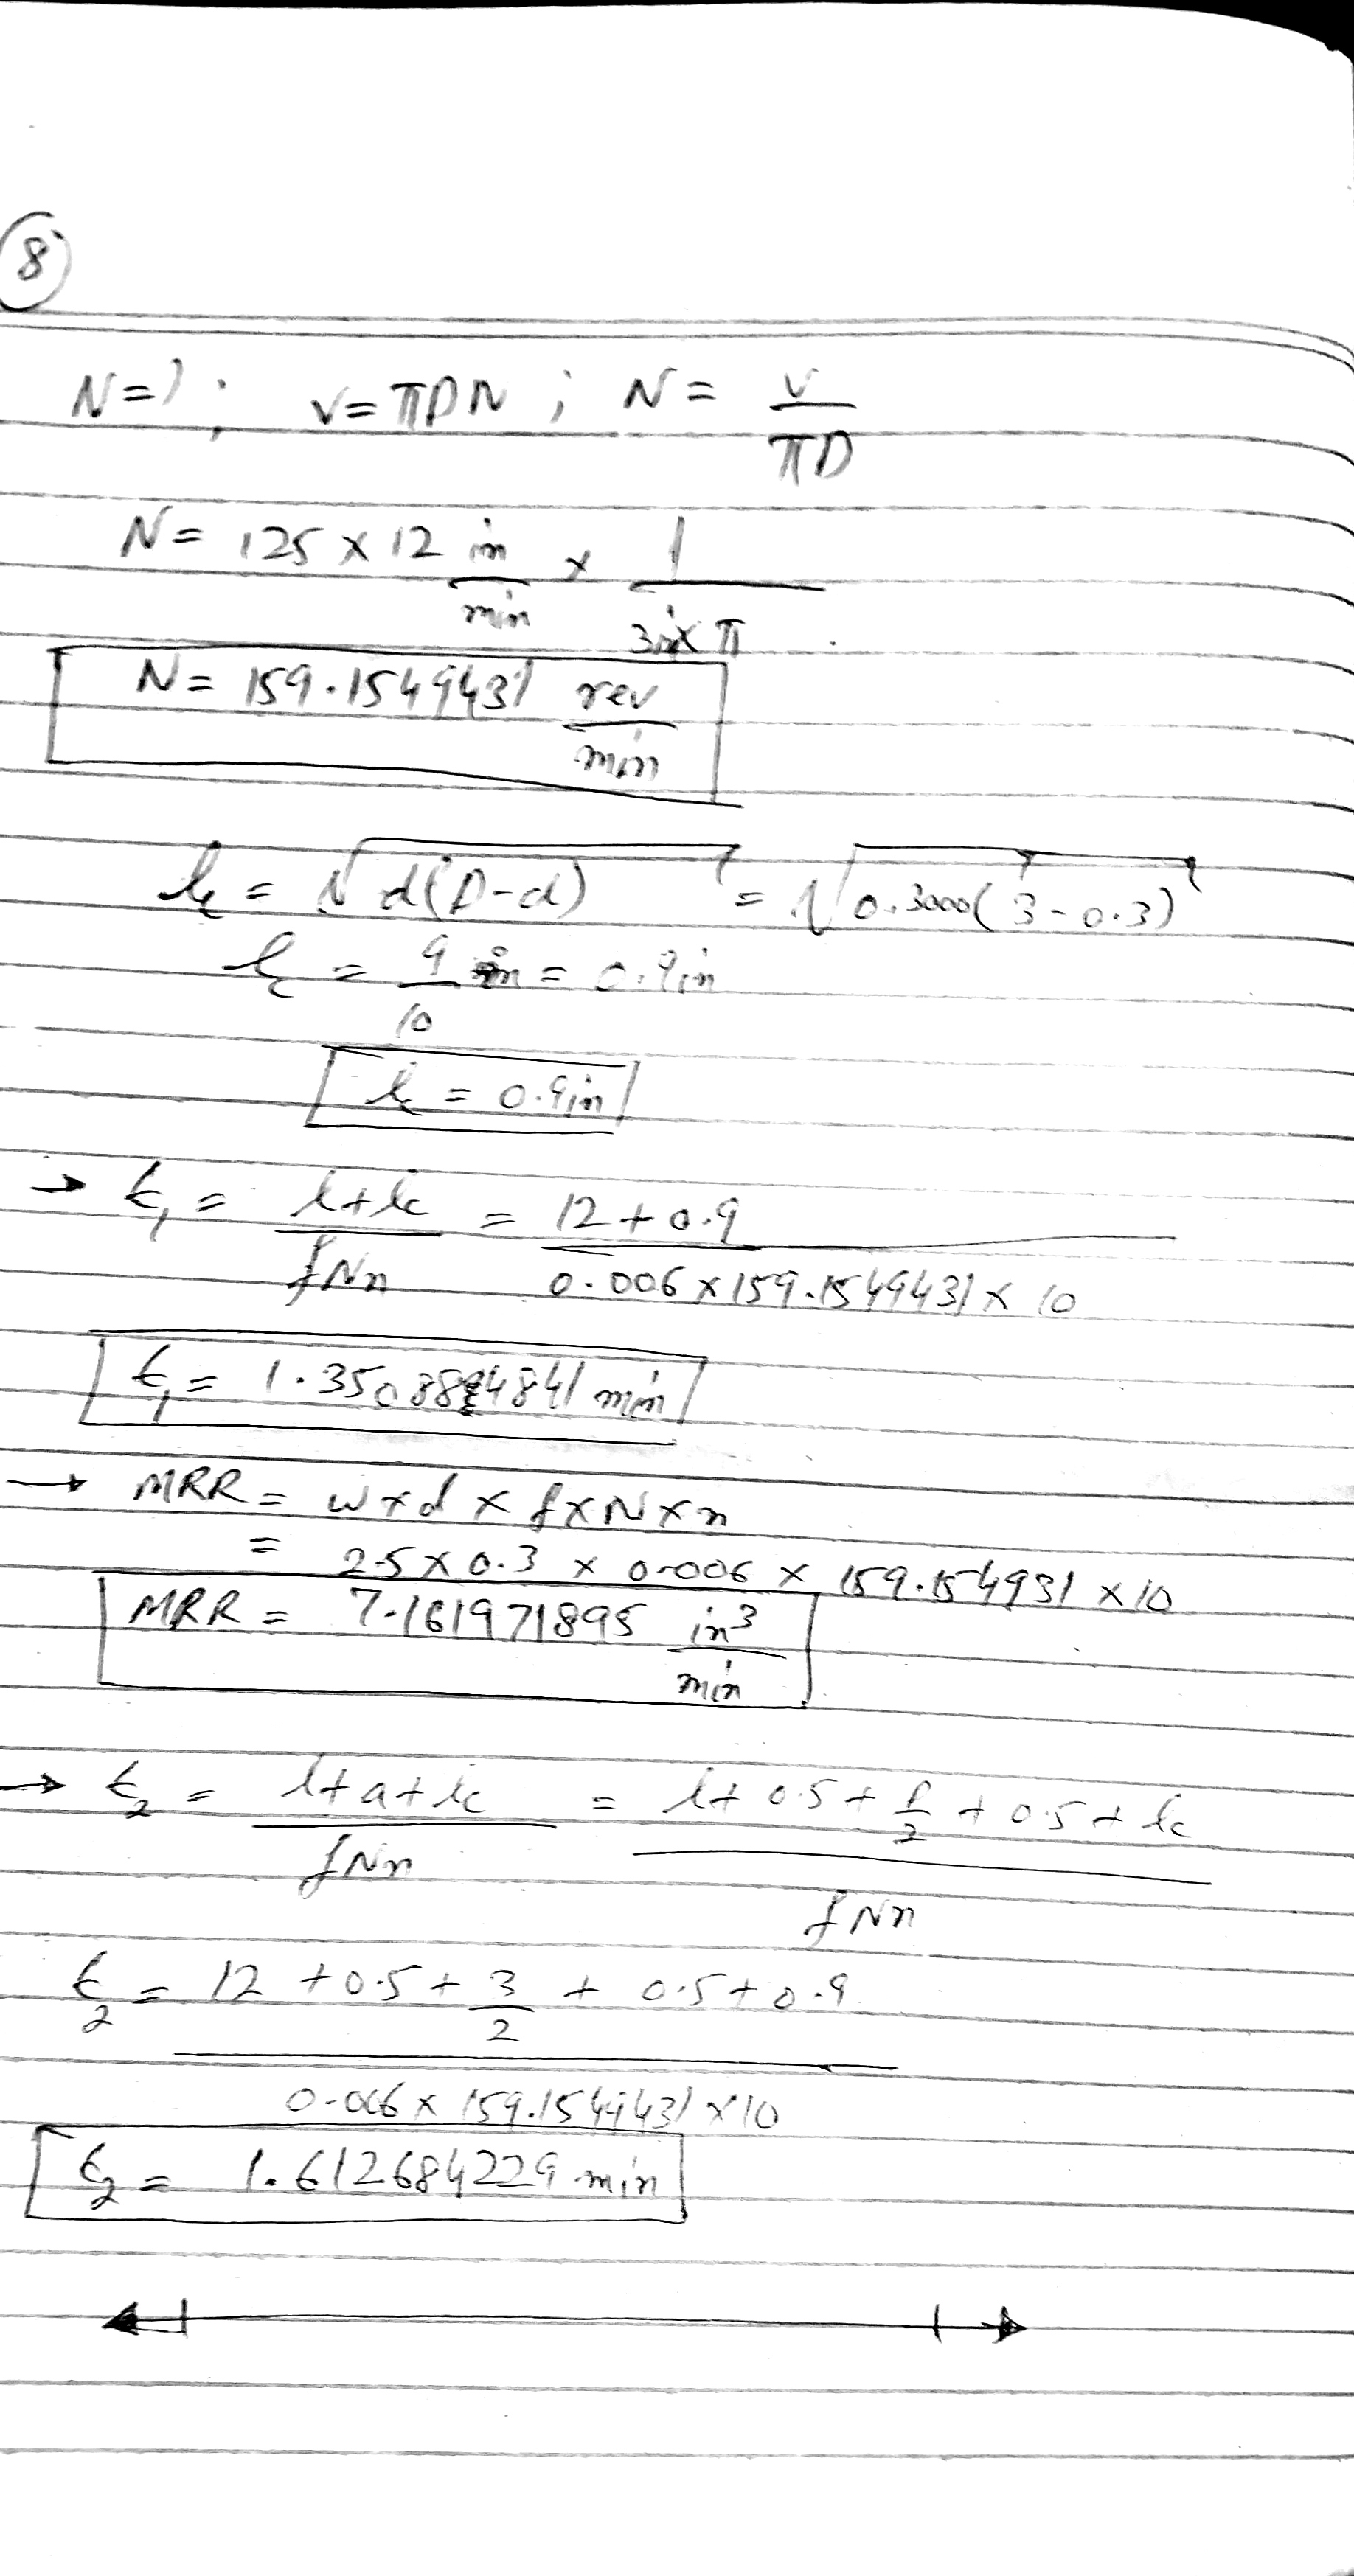 8
N=?; V=πDN; N= V/πD
N= 125 x 12 in/min x 1/3in x π
N= 159.1549431 rev/min
lc = √d(D-d) = √0.3000(3-0.3)
lc = 9/10 in = 0.9in
lc = 0.9in
→ t₁ = l+lc/fNn = 12+0.9/0.006 x 159.1549431 x 10
t₁ = 1.350884841 min
→ MRR = w x d x f x N x n
= 2.5 x 0.3 x 0.006 x 159.154931 x 10
MRR = 7.161971895 in³/min
→ t₂ = l+a+lc/fNn = l+0.5+D/2+0.5+lc/fNn
t₂ = 12+0.5+3/2+0.5+0.9/0.006 x 159.1549431 x 10
t₂ = 1.612684229 min